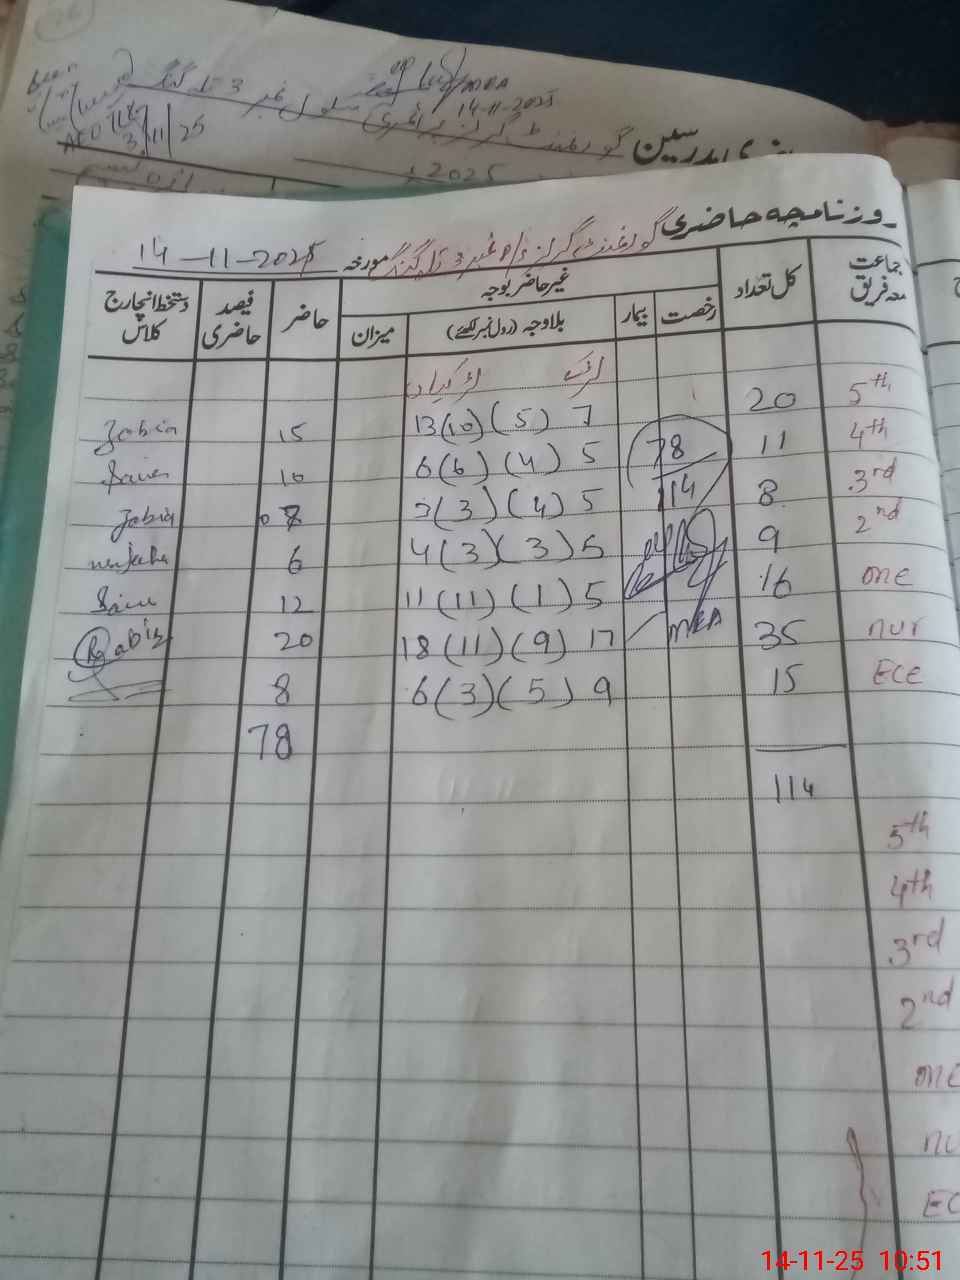 26
MEA
14-11-2025
AEO
3/11/25
گورنمنٹ گرلز پرائمری سکول نمبر 3 تلہ گنگ
مدرسین
2025
روزنامچہ حاضری گورنمنٹ گرلز p/s نمبر 3 تلہ گنگ مورخہ 14-11-2025
جماعت معہ فریق کل تعداد غیر حاضر بوجہ حاضر فیصد حاضری دستخط انچارج کلاس
رخصت بیمار بلاوجہ (رول نمبر لکھئے) میزان
لڑکے لڑکیاں
5th 20 7 (5) (10) 13 15 Zobia
4th 11 5 (4) (6) 6 10
3rd 8 5 (4) (3) 3 07 Zobia
2nd 9 5 (3) (3) 4 6
one 16 5 (1) (11) 11 12
nur 35 17 (9) (11) 18 20 Rabia
ECE 15 9 (5) (3) 6 8
78
114
78
114
MEA
5th
4th
3rd
2nd
one
nu
EC
14-11-25 10:51